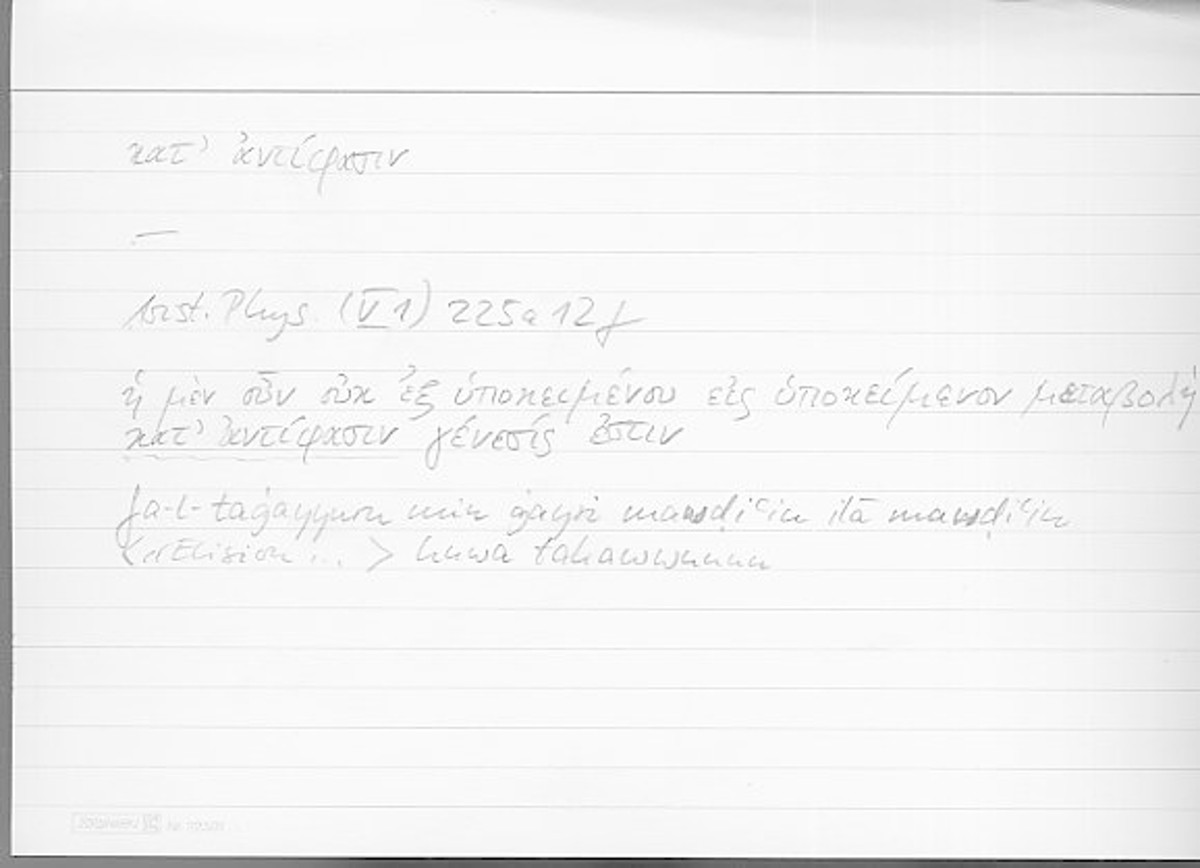 κατ' ἀντίφασιν
—
Arist. Phys. (V 1) 225a 12f
ἡ μὲν οὖν οὐκ ἐξ ὑποκειμένου εἰς ὑποκείμενον μεταβολὴ
κατ' ἀντίφασιν γένεσίς ἐστιν
fa-l-taġayyuru min ġayri mawḍiʿin ilā mawḍiʿin
< Elision ... > huwa takawwunun
Nr.